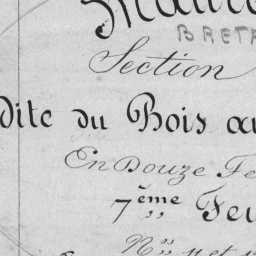 BRET
Section
dite du Bois au
En Douze Fe
7ème Feu